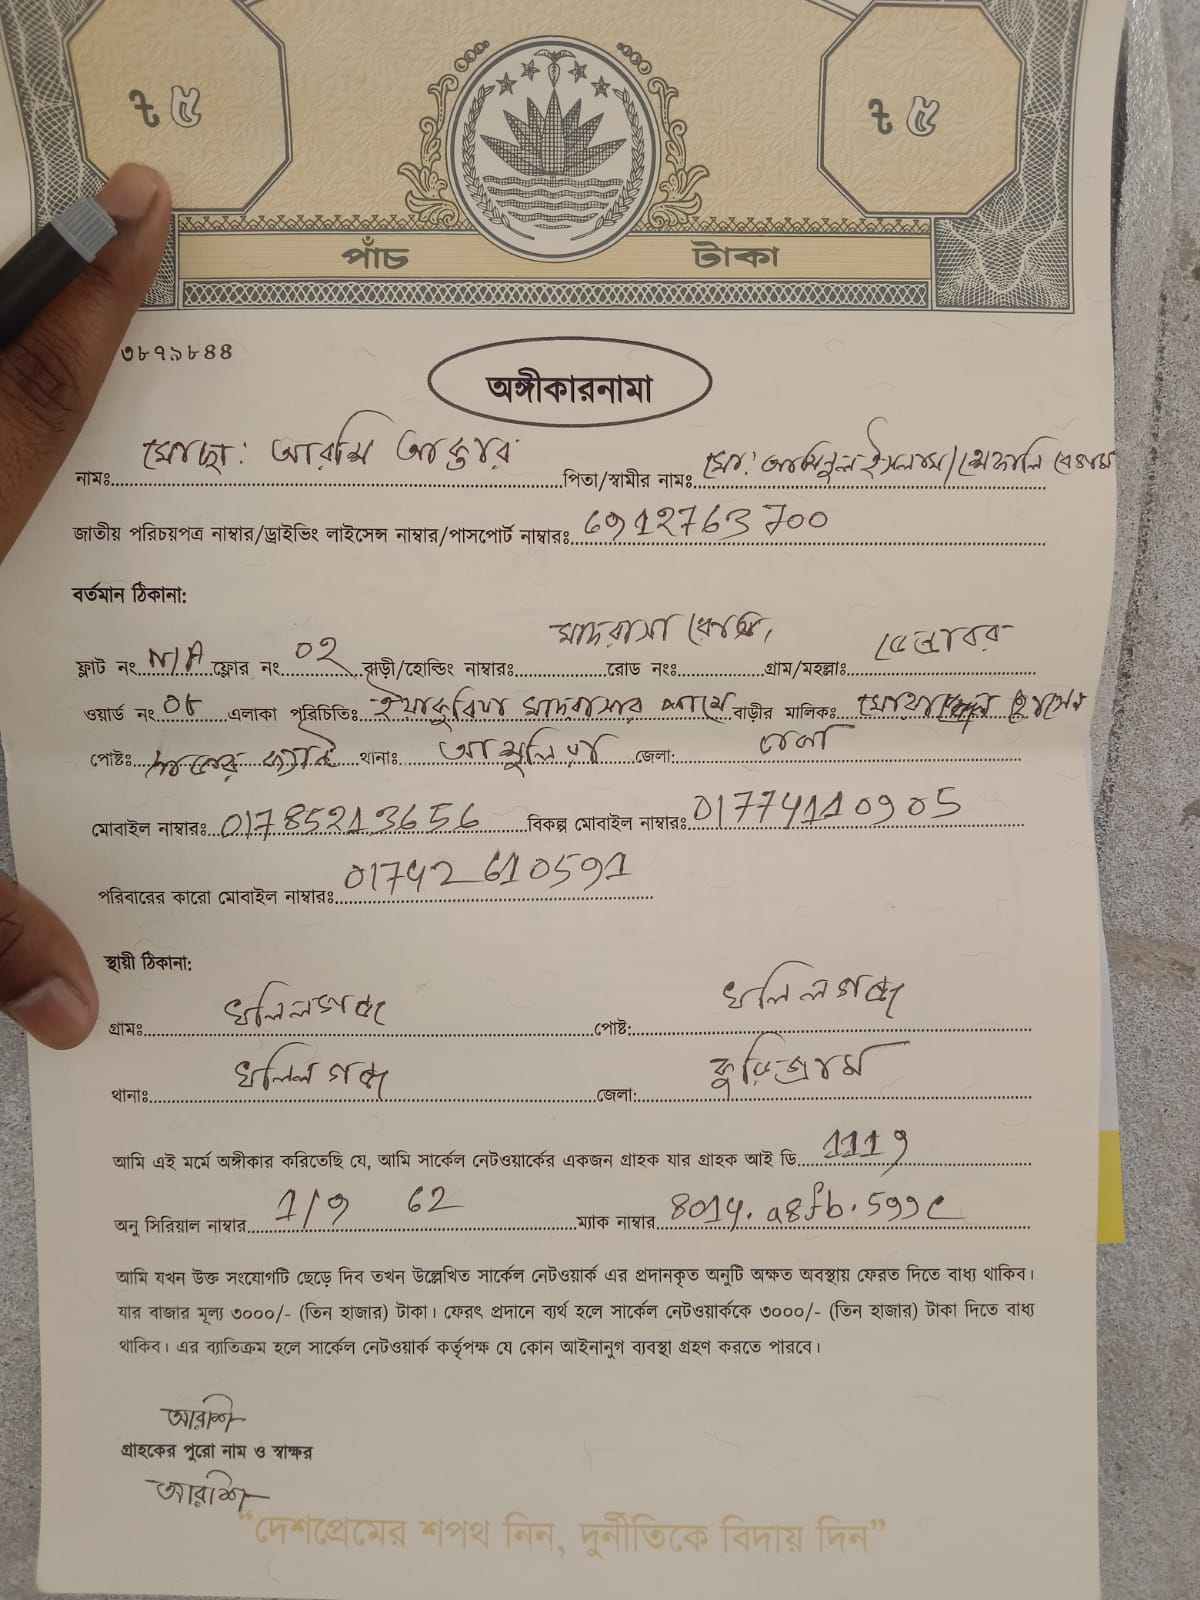 ৳ ৫ ৳ ৫
পাঁচ টাকা
৩৮৭৯৮৪৪
অঙ্গীকারনামা
নামঃ মোছা: আরশি আক্তার পিতা/স্বামীর নামঃ মো: আমিনুল ইসলাম/শেফালি বেগম
জাতীয় পরিচয়পত্র নাম্বার/ড্রাইভিং লাইসেন্স নাম্বার/পাসপোর্ট নাম্বারঃ 6912763700
বর্তমান ঠিকানা:
ফ্লাট নং N/A ফ্লোর নং 02 বাড়ী/হোল্ডিং নাম্বারঃ মাদরাসা রোড নংঃ গ্রাম/মহল্লাঃ
ওয়ার্ড নং 08 এলাকা পরিচিতিঃ মাদরাসার পাশে বাড়ীর মালিকঃ হোসেন
পোষ্টঃ থানাঃ আশুলিয়া জেলা: ঢাকা
মোবাইল নাম্বারঃ 01785213656 বিকল্প মোবাইল নাম্বারঃ 01774110905
পরিবারের কারো মোবাইল নাম্বারঃ 01742610591
স্থায়ী ঠিকানা:
গ্রামঃ খলিলগঞ্জ পোষ্ট: খলিলগঞ্জ
থানাঃ খলিলগঞ্জ জেলা: কুড়িগ্রাম
আমি এই মর্মে অঙ্গীকার করিতেছি যে, আমি সার্কেল নেটওয়ার্কের একজন গ্রাহক যার গ্রাহক আই ডি 1119
অনু সিরিয়াল নাম্বার 1/9 62 ম্যাক নাম্বার 8014.a8fb.599c
আমি যখন উক্ত সংযোগটি ছেড়ে দিব তখন উল্লেখিত সার্কেল নেটওয়ার্ক এর প্রদানকৃত অনুটি অক্ষত অবস্থায় ফেরত দিতে বাধ্য থাকিব।
যার বাজার মূল্য ৩০০০/- (তিন হাজার) টাকা। ফেরৎ প্রদানে ব্যর্থ হলে সার্কেল নেটওয়ার্ককে ৩০০০/- (তিন হাজার) টাকা দিতে বাধ্য
থাকিব। এর ব্যাতিক্রম হলে সার্কেল নেটওয়ার্ক কর্তৃপক্ষ যে কোন আইনানুগ ব্যবস্থা গ্রহণ করতে পারবে।
আরশি
গ্রাহকের পুরো নাম ও স্বাক্ষর
আরশি
“দেশপ্রেমের শপথ নিন, দুর্নীতিকে বিদায় দিন”